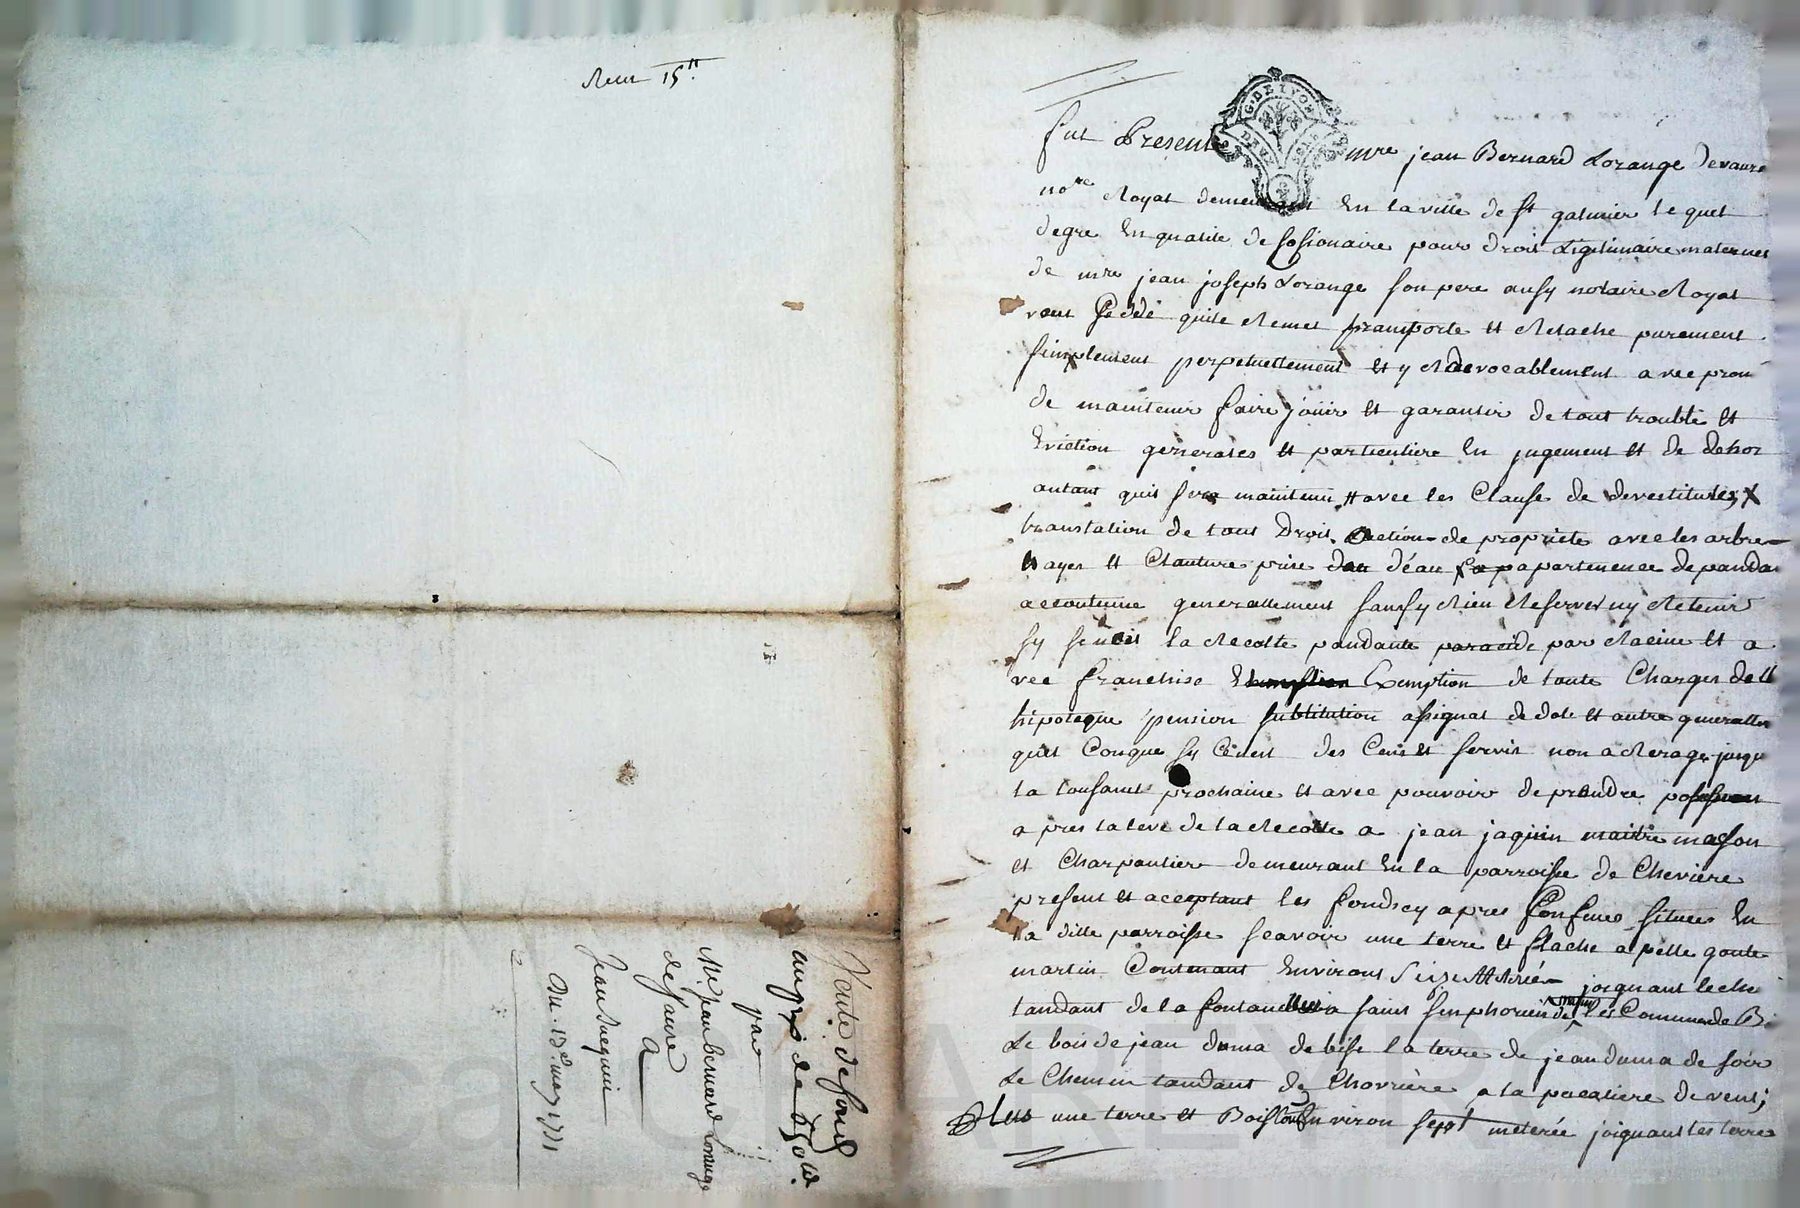 Reçu 15ᵗᵗ
G. DE LYON
fut Present mre jean Bernard Lorange devaure
nore Royal demeurant En la ville de st galmier lequel
degre En qualité de sesionaire pour droit Ligitimaire maternel
de mre jean joseph Lorange son pere ausy notaire Royal
vent Cedde quite Remet transporte Et Relache purement
simplement perpetuellement Et y Revocablement avec prom
de maintenir faire joüir Et garantir de tout trouble Et
Eviction generales Et particuliere En jugement Et de dehor
autant quil sera maintenu Et avec les Clause de devestitutes
translation de tout Droit action de propriete avec les arbre
hayes Et Clauture prise d'eau apartenence depanda
accoutume generallement sans y Rien Reserver ny Retenir
sy se n'est la Recolte pandante par Racine Et a
vec franchise Exemption de toute Charges dett
hipoteque pension substitution assignat de dote Et autre generalle
quel Conque sy Ce nest des Cens Et servis non a Rerage jusqu
la tousaint prochaine Et avec pouvoir de prendre possession
a pres la levé de la Recolte a jean jaquin maitre mason
et Charpantier demeurant En la parroisse de Cheviere
present Et acceptant les fonds cy apres Confines situees En
la ditte parroisse scavoir une terre Et flache apellé goute
martin Contenant Environt Size Meteré joignant le che
tandant de la fontanella a saint sinphorien de matin les Commune de B
Le bois de jean duma de bise la terre de jean duma de soir
Le Chemin tandant de Chevrière a la pacaliere de vent;
Plus une terre et Bois Environ sept meterée joignant les terre
Vente de fond
au prix de 650 tt
par
Mr jean bernard Lorange
devaure
A
Jean Jacquin
Du 13e may 1771